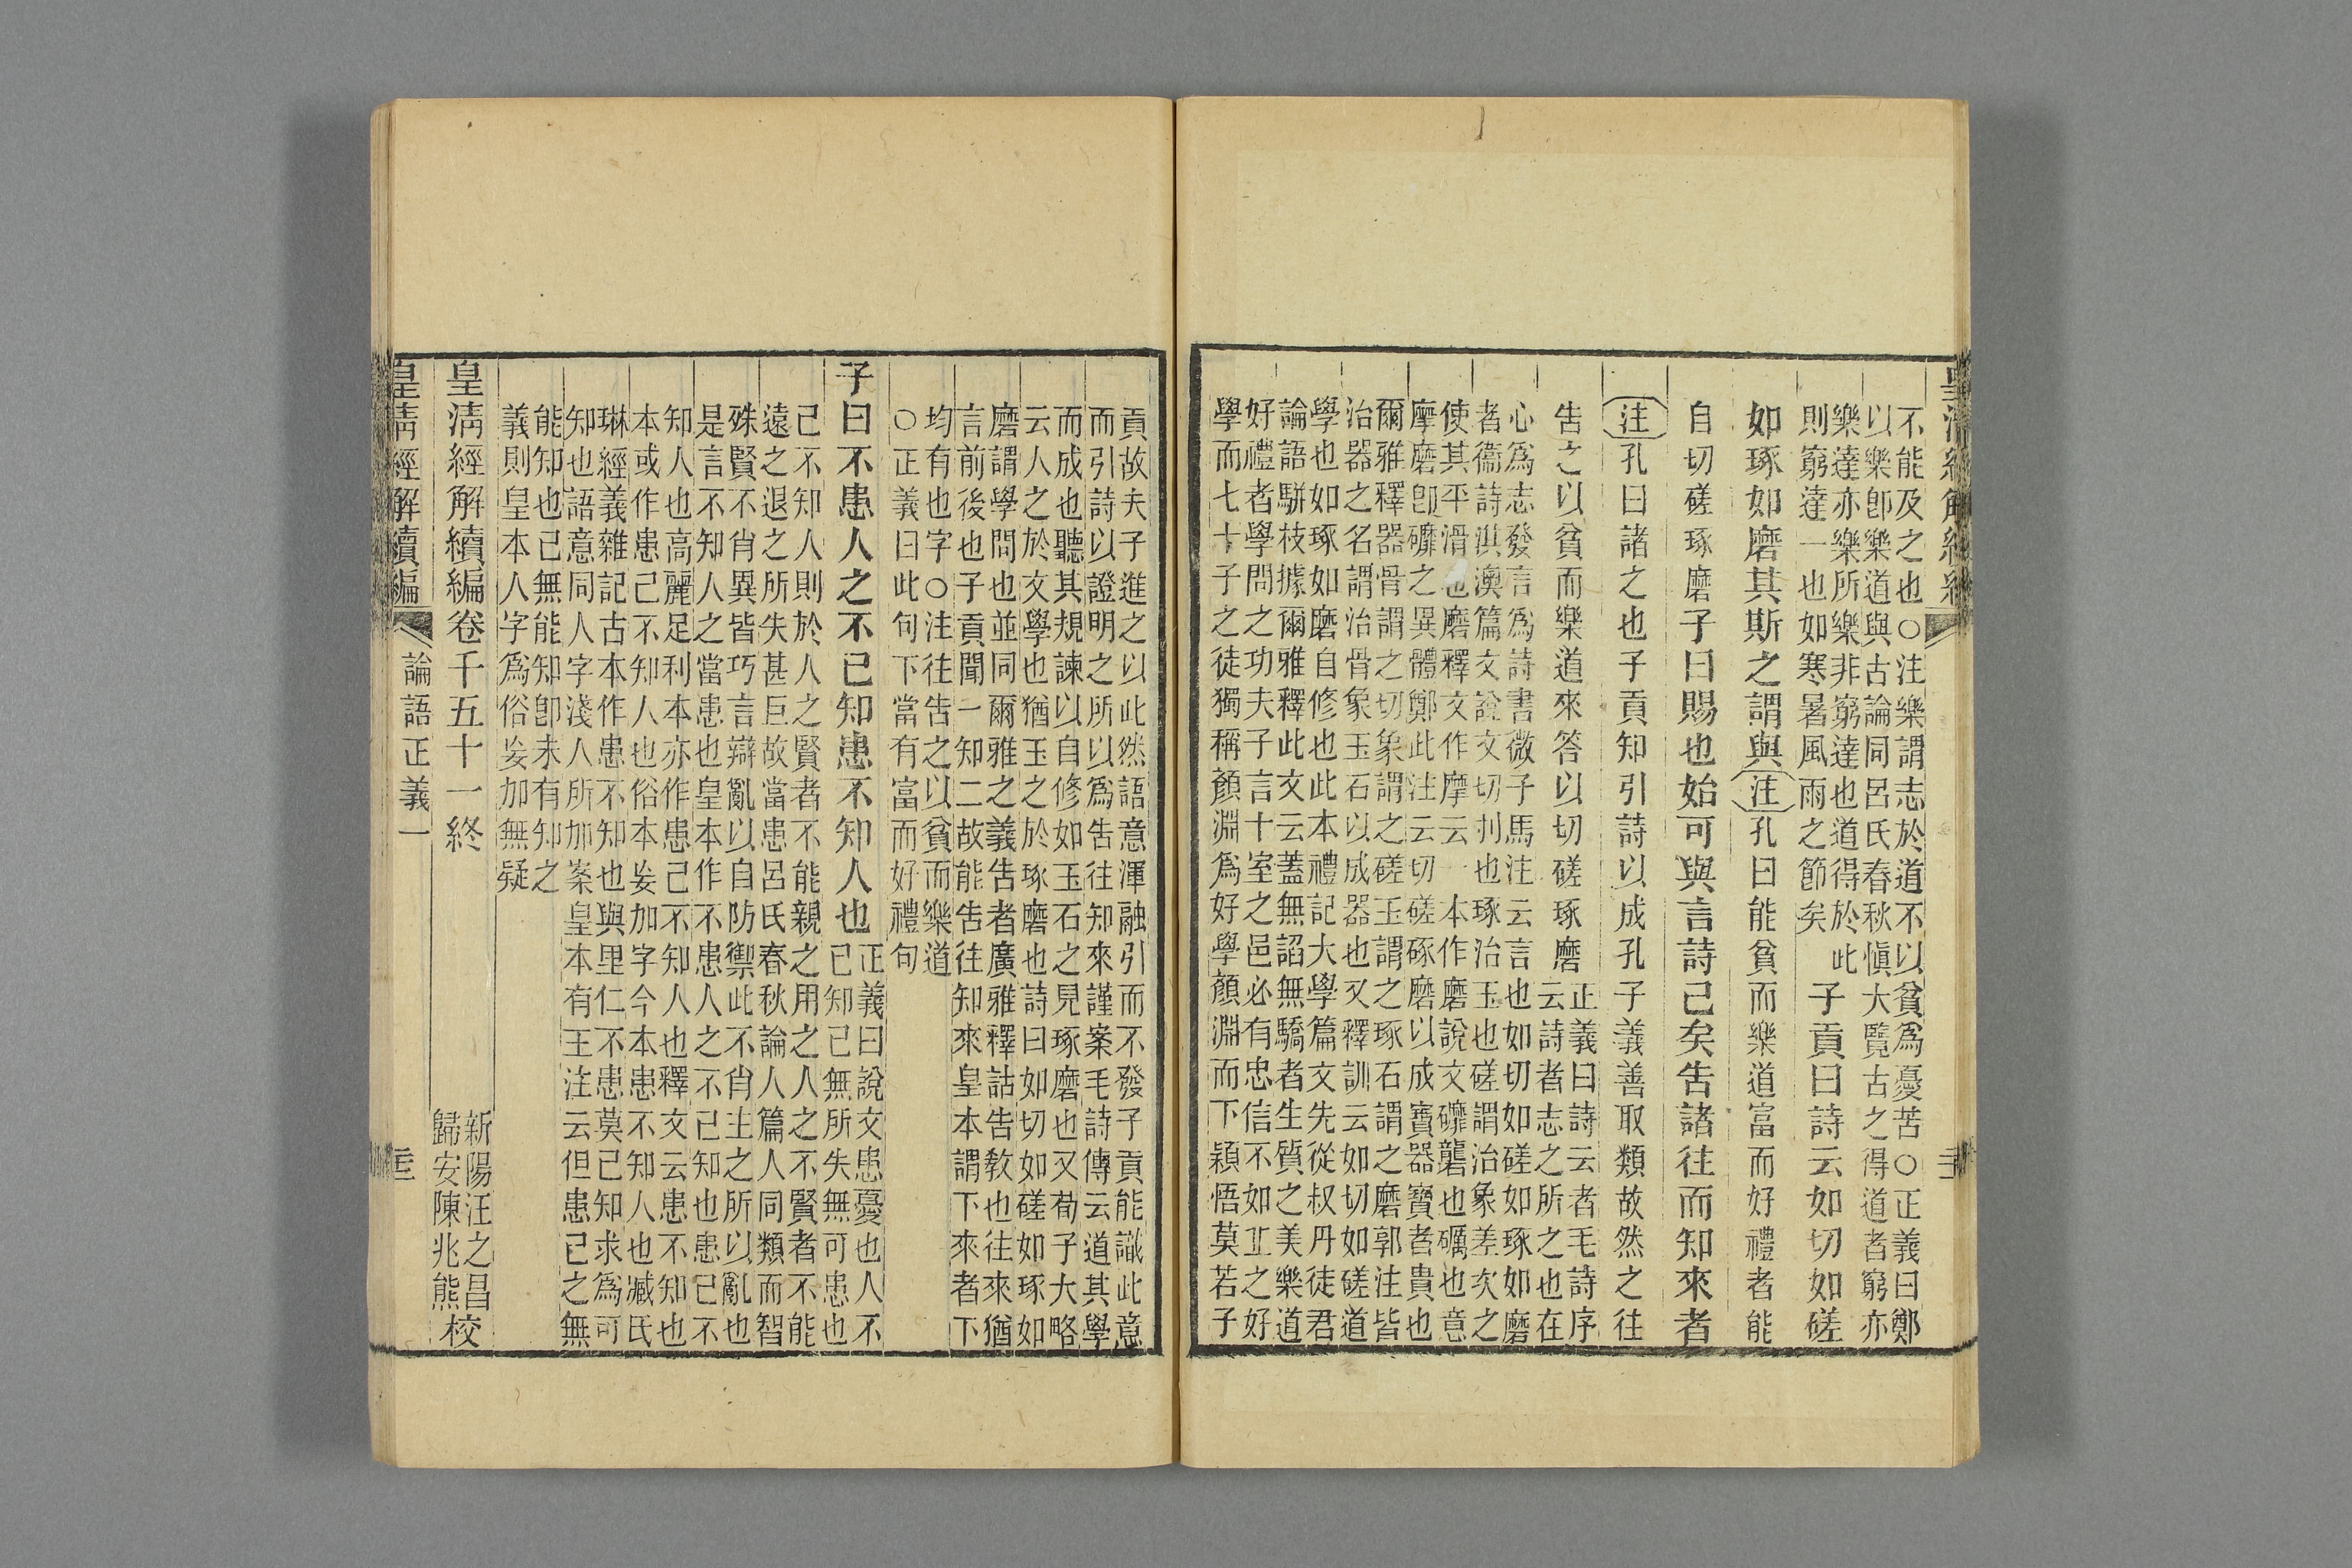 不能及之也○注樂謂志於道不以貧爲憂苦○正義曰鄭
以樂卽樂道與古論同呂氏春秋愼大覽古之得道者窮亦
樂達亦樂所樂非窮達也道得於此
則窮達一也如寒暑風雨之節矣
子貢曰詩云如切如磋
如琢如磨其斯之謂與注孔曰能貧而樂道富而好禮者能
自切磋琢磨子曰賜也始可與言詩已矣告諸往而知來者
注孔曰諸之也子貢知引詩以成孔子義善取類故然之往
告之以貧而樂道來答以切磋琢磨
正義曰詩云者毛詩序
云詩者志之所之也在
心爲志發言爲詩書微子馬注云言也如切如磋如琢如磨
者衞詩淇澳篇文說文切刌也琢治玉也磋謂治象差次之
使其平滑也磨釋文作摩云一本作磨說文礳礱也礪也意
摩磨卽礳之異體鄭此注云切磋琢磨以成寶器寶者貴也
爾雅釋器骨謂之切象謂之磋玉謂之琢石謂之磨郭注皆
治器之名謂治骨象玉石以成器也又釋訓云如切如磋道
學也如琢如磨自修也此本禮記大學篇文先從叔丹徒君
論語駢枝據爾雅釋此文云蓋無諂無驕者生質之美樂道
好禮者學問之功夫子言十室之邑必有忠信不如丘之好
學而七十子之徒獨稱顏淵爲好學顏淵而下穎悟莫若子
貢故夫子進之以此然語意渾融引而不發子貢能識此意
而引詩以證明之所以爲告往知來謹案毛詩傳云道其學
而成也聽其規諫以自修如玉石之見琢磨也又荀子大略
云人之於文學也猶玉之於琢磨也詩曰如切如磋如琢如
磨謂學問也並同爾雅之義告者廣雅釋詁告敎也往來猶
言前後也子貢聞一知二故能告往知來皇本謂下來者下
均有也字○注往告之以貧而樂道
○正義曰此句下當有富而好禮句
子曰不患人之不己知患不知人也
正義曰說文患憂也人不
己知己無所失無可患也
己不知人則於人之賢者不能親之用之人之不賢者不能
遠之退之所失甚巨故當患呂氏春秋論人篇人同類而智
殊賢不肖異皆巧言辯亂以自防禦此不肖主之所以亂也
是言不知人之當患也皇本作不患人之不己知也患己不
知人也高麗足利本亦作患己不知人也釋文云患不知也
本或作患己不知人也俗本妄加字今本患不知人也臧氏
琳經義雜記古本作患不知也與里仁不患莫己知求爲可
知也語意同人字淺人所加案皇本有王注云但患己之無
能知也己無能知卽未有知之
義則皇本人字爲俗妄加無疑
皇清經解續編卷千五十一終
新陽汪之昌
歸安陳兆熊校
皇清經解續編
論語正義一